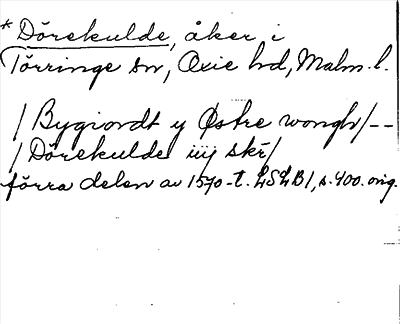 * Dörekulde, åker i
Törringe sn, Oxie hd, Malm. l.
/ Bygiordt y Østre wongh / - -
/ Dörekulde iiij skr /
förra delen av 1570-t. LSLB 1, s. 400. orig.